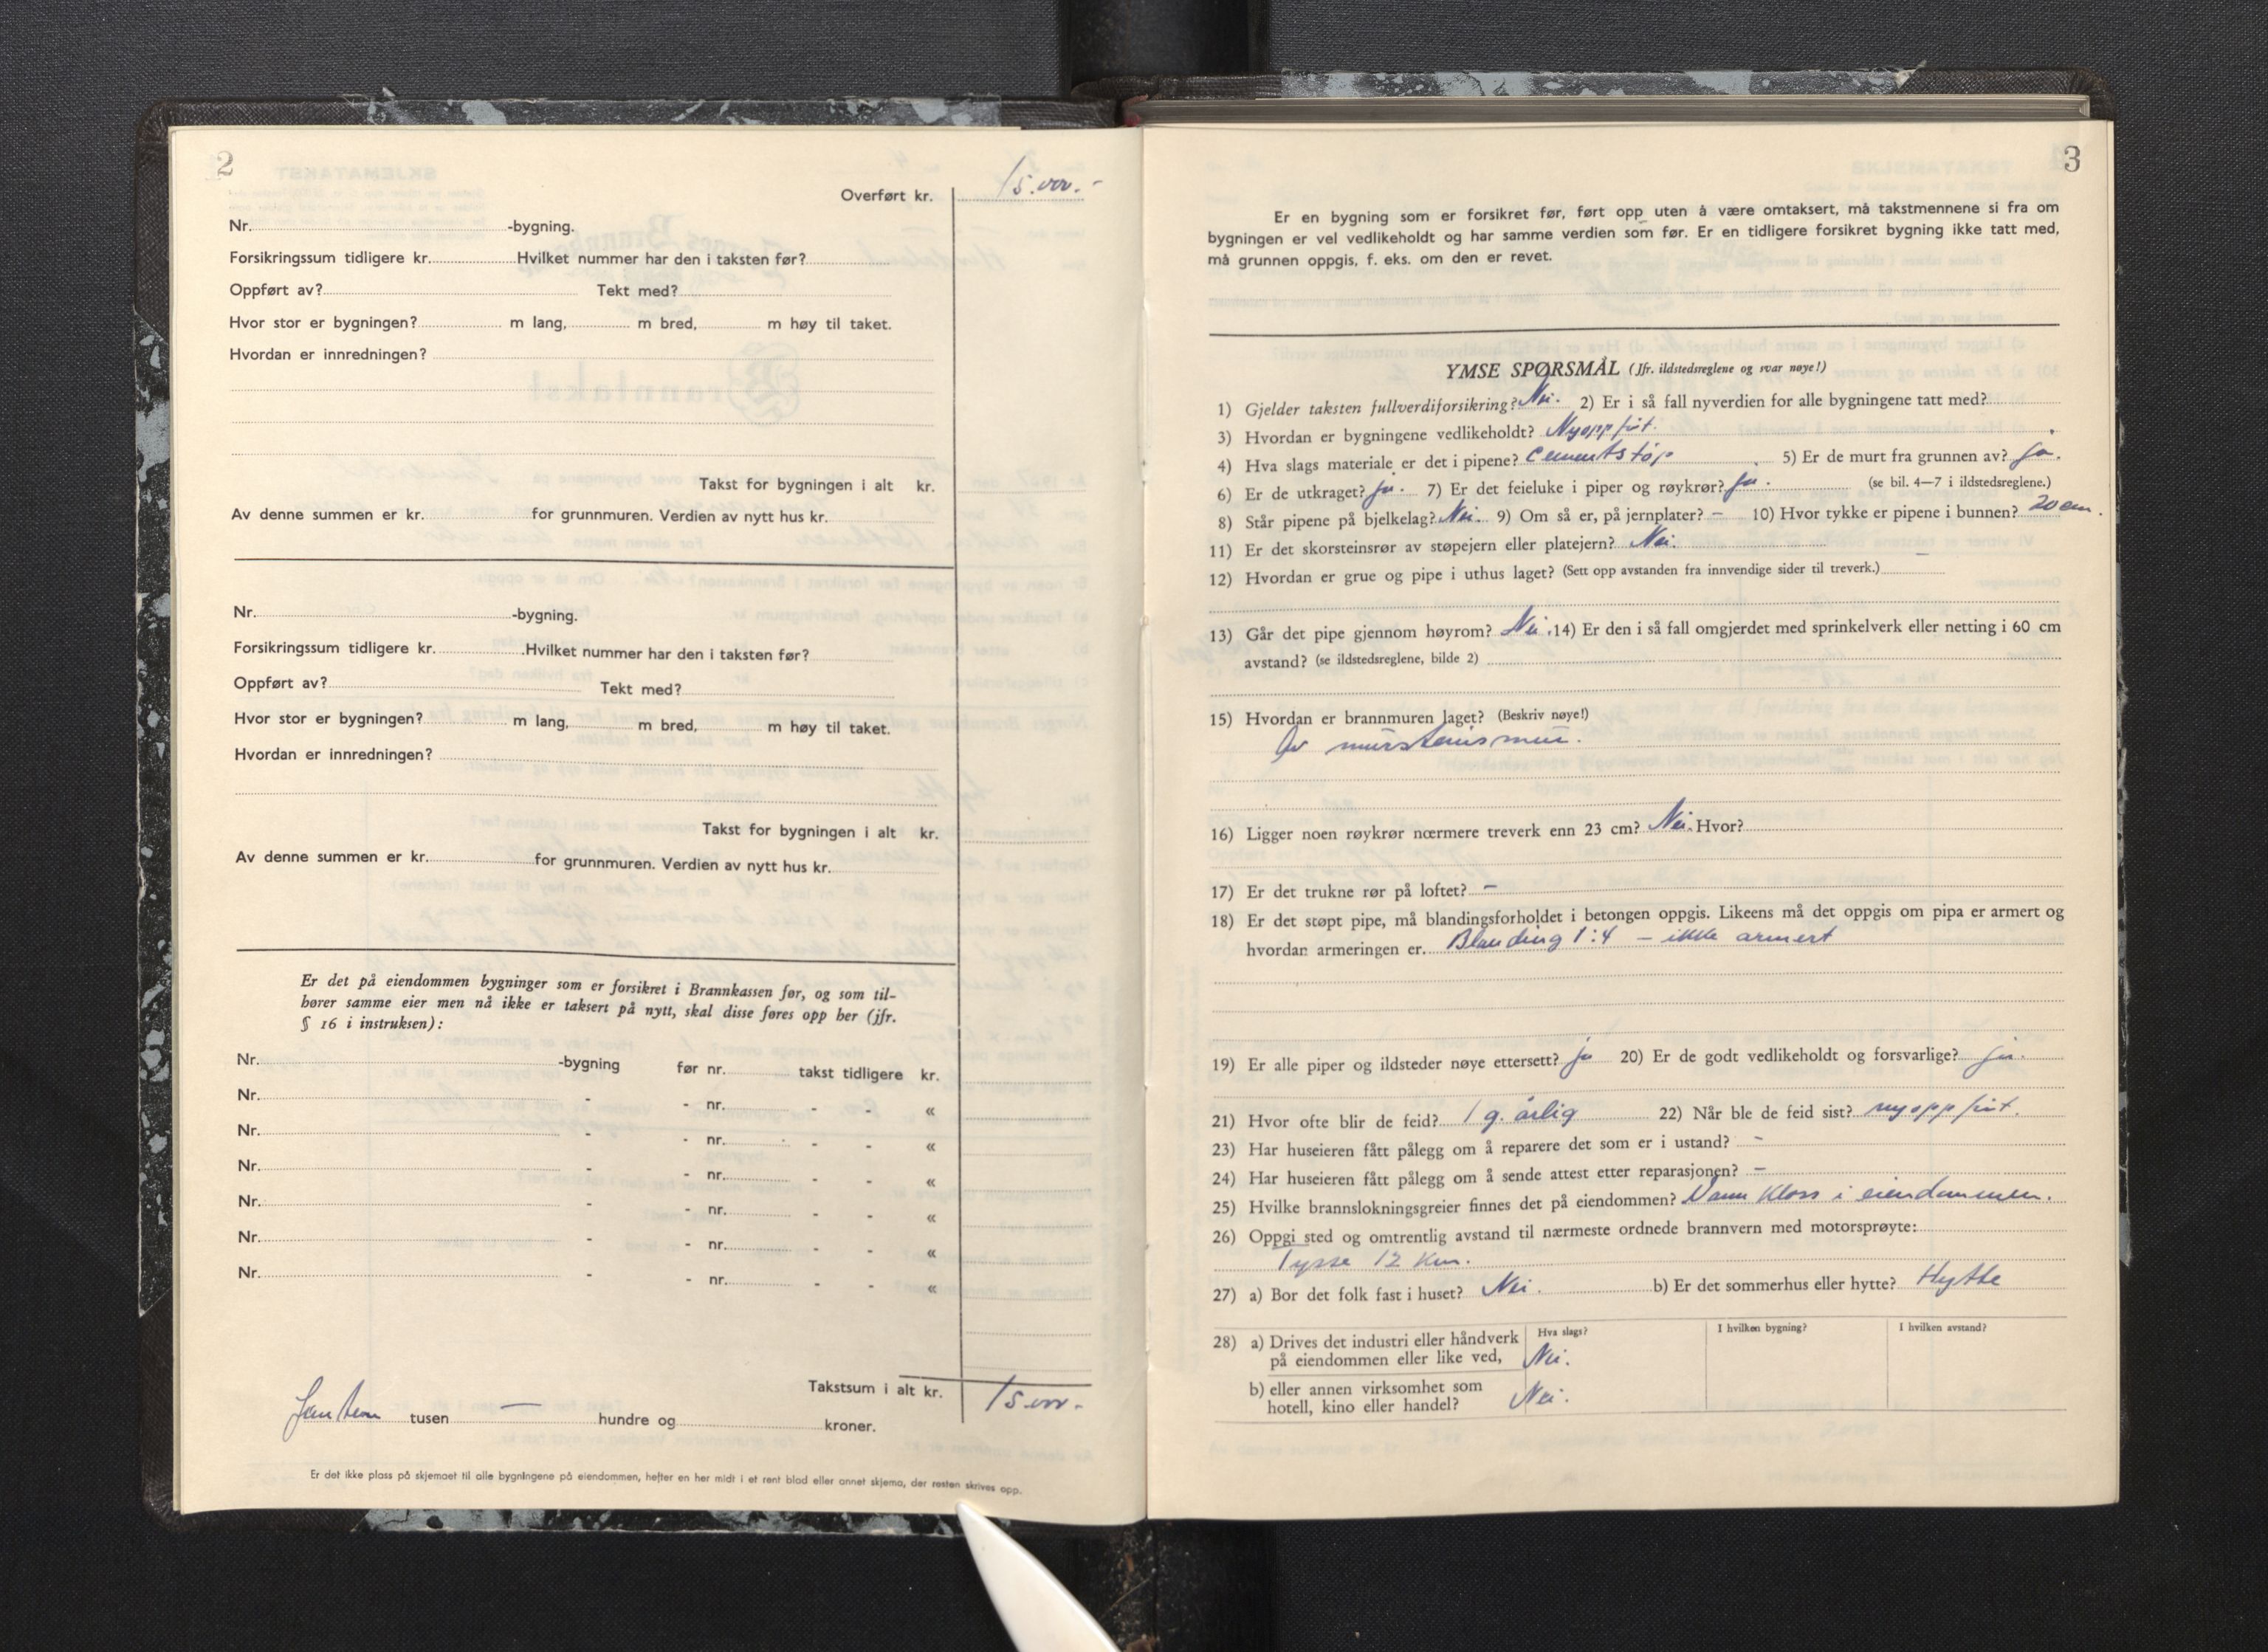 2
Overført kr. 15.000.-
Nr. -bygning.
Forsikringssum tidligere kr. Hvilket nummer har den i taksten før?
Oppført av? Tekt med?
Hvor stor er bygningen? m lang, m bred, m høy til taket.
Hvordan er innredningen?
Takst for bygningen i alt kr.
Av denne summen er kr. for grunnmuren. Verdien av nytt hus kr.
Nr. -bygning.
Forsikringssum tidligere kr. Hvilket nummer har den i taksten før?
Oppført av? Tekt med?
Hvor stor er bygningen? m lang, m bred, m høy til taket.
Hvordan er innredningen?
Takst for bygningen i alt kr.
Av denne summen er kr. for grunnmuren. Verdien av nytt hus kr.
Er det på eiendommen bygninger som er forsikret i Brannkassen før, og som til-
hører samme eier men nå ikke er taksert på nytt, skal disse føres opp her (jfr.
§ 16 i instruksen):
Nr. -bygning før nr. takst tidligere kr.
Nr. - - nr. - - «
Nr. - - nr. - - «
Nr. - - nr. - - «
Nr. - - nr. - - «
Nr. - - nr. - - «
Nr. - - nr. - - «
Takstsum i alt kr. 15.000.-
femten tusen — hundre og kroner.
Er det ikke plass på skjemaet til alle bygningene på eiendommen, hefter en her midt i et rent blad eller annet skjema, der resten skrives opp.
3
Er en bygning som er forsikret før, ført opp uten å være omtaksert, må takstmennene si fra om
bygningen er vel vedlikeholdt og har samme verdien som før. Er en tidligere forsikret bygning ikke tatt med,
må grunnen oppgis, f. eks. om den er revet.
YMSE SPØRSMÅL (Jfr. ildstedsreglene og svar nøye!)
1) Gjelder taksten fullverdiforsikring? Nei. 2) Er i så fall nyverdien for alle bygningene tatt med?
3) Hvordan er bygningene vedlikeholdt? Nyoppført.
4) Hva slags materiale er det i pipene? Cementstøp 5) Er de murt fra grunnen av? Ja.
6) Er de utkraget? Ja. 7) Er det feieluke i piper og røykrør? Ja. (se bil. 4—7 i ildstedsreglene.)
8) Står pipene på bjelkelag? Nei. 9) Om så er, på jernplater? – 10) Hvor tykke er pipene i bunnen? 20 cm.
11) Er det skorsteinsrør av støpejern eller platejern? Nei.
12) Hvordan er grue og pipe i uthus laget? (Sett opp avstanden fra innvendige sider til treverk.) —
13) Går det pipe gjennom høyrom? Nei. 14) Er den i så fall omgjerdet med sprinkelverk eller netting i 60 cm
avstand? (se ildstedsreglene, bilde 2)
15) Hvordan er brannmuren laget? (Beskriv nøye!)
Av murstensmur.
16) Ligger noen røykrør nærmere treverk enn 23 cm? Nei. Hvor?
17) Er det trukne rør på loftet? –
18) Er det støpt pipe, må blandingsforholdet i betongen oppgis. Likeens må det oppgis om pipa er armert og
hvordan armeringen er. Blanding 1:4 – ikke armert
19) Er alle piper og ildsteder nøye ettersett? ja 20) Er de godt vedlikeholdt og forsvarlige? ja.
21) Hvor ofte blir de feid? 1 g. årlig 22) Når ble de feid sist? nyoppført.
23) Har huseieren fått pålegg om å reparere det som er i ustand? –
24) Har huseieren fått pålegg om å sende attest etter reparasjonen? –
25) Hvilke brannslokningsgreier finnes det på eiendommen? Vann kloss i eiendommen.
26) Oppgi sted og omtrentlig avstand til nærmeste ordnede brannvern med motorsprøyte:
Tysse 12 km.
27) a) Bor det folk fast i huset? Nei. b) Er det sommerhus eller hytte? Hytte
28) a) Drives det industri eller håndverk Hva slags? I hvilken bygning? I hvilken avstand?
på eiendommen eller like ved, Nei.
b) eller annen virksomhet som
hotell, kino eller handel? Nei.